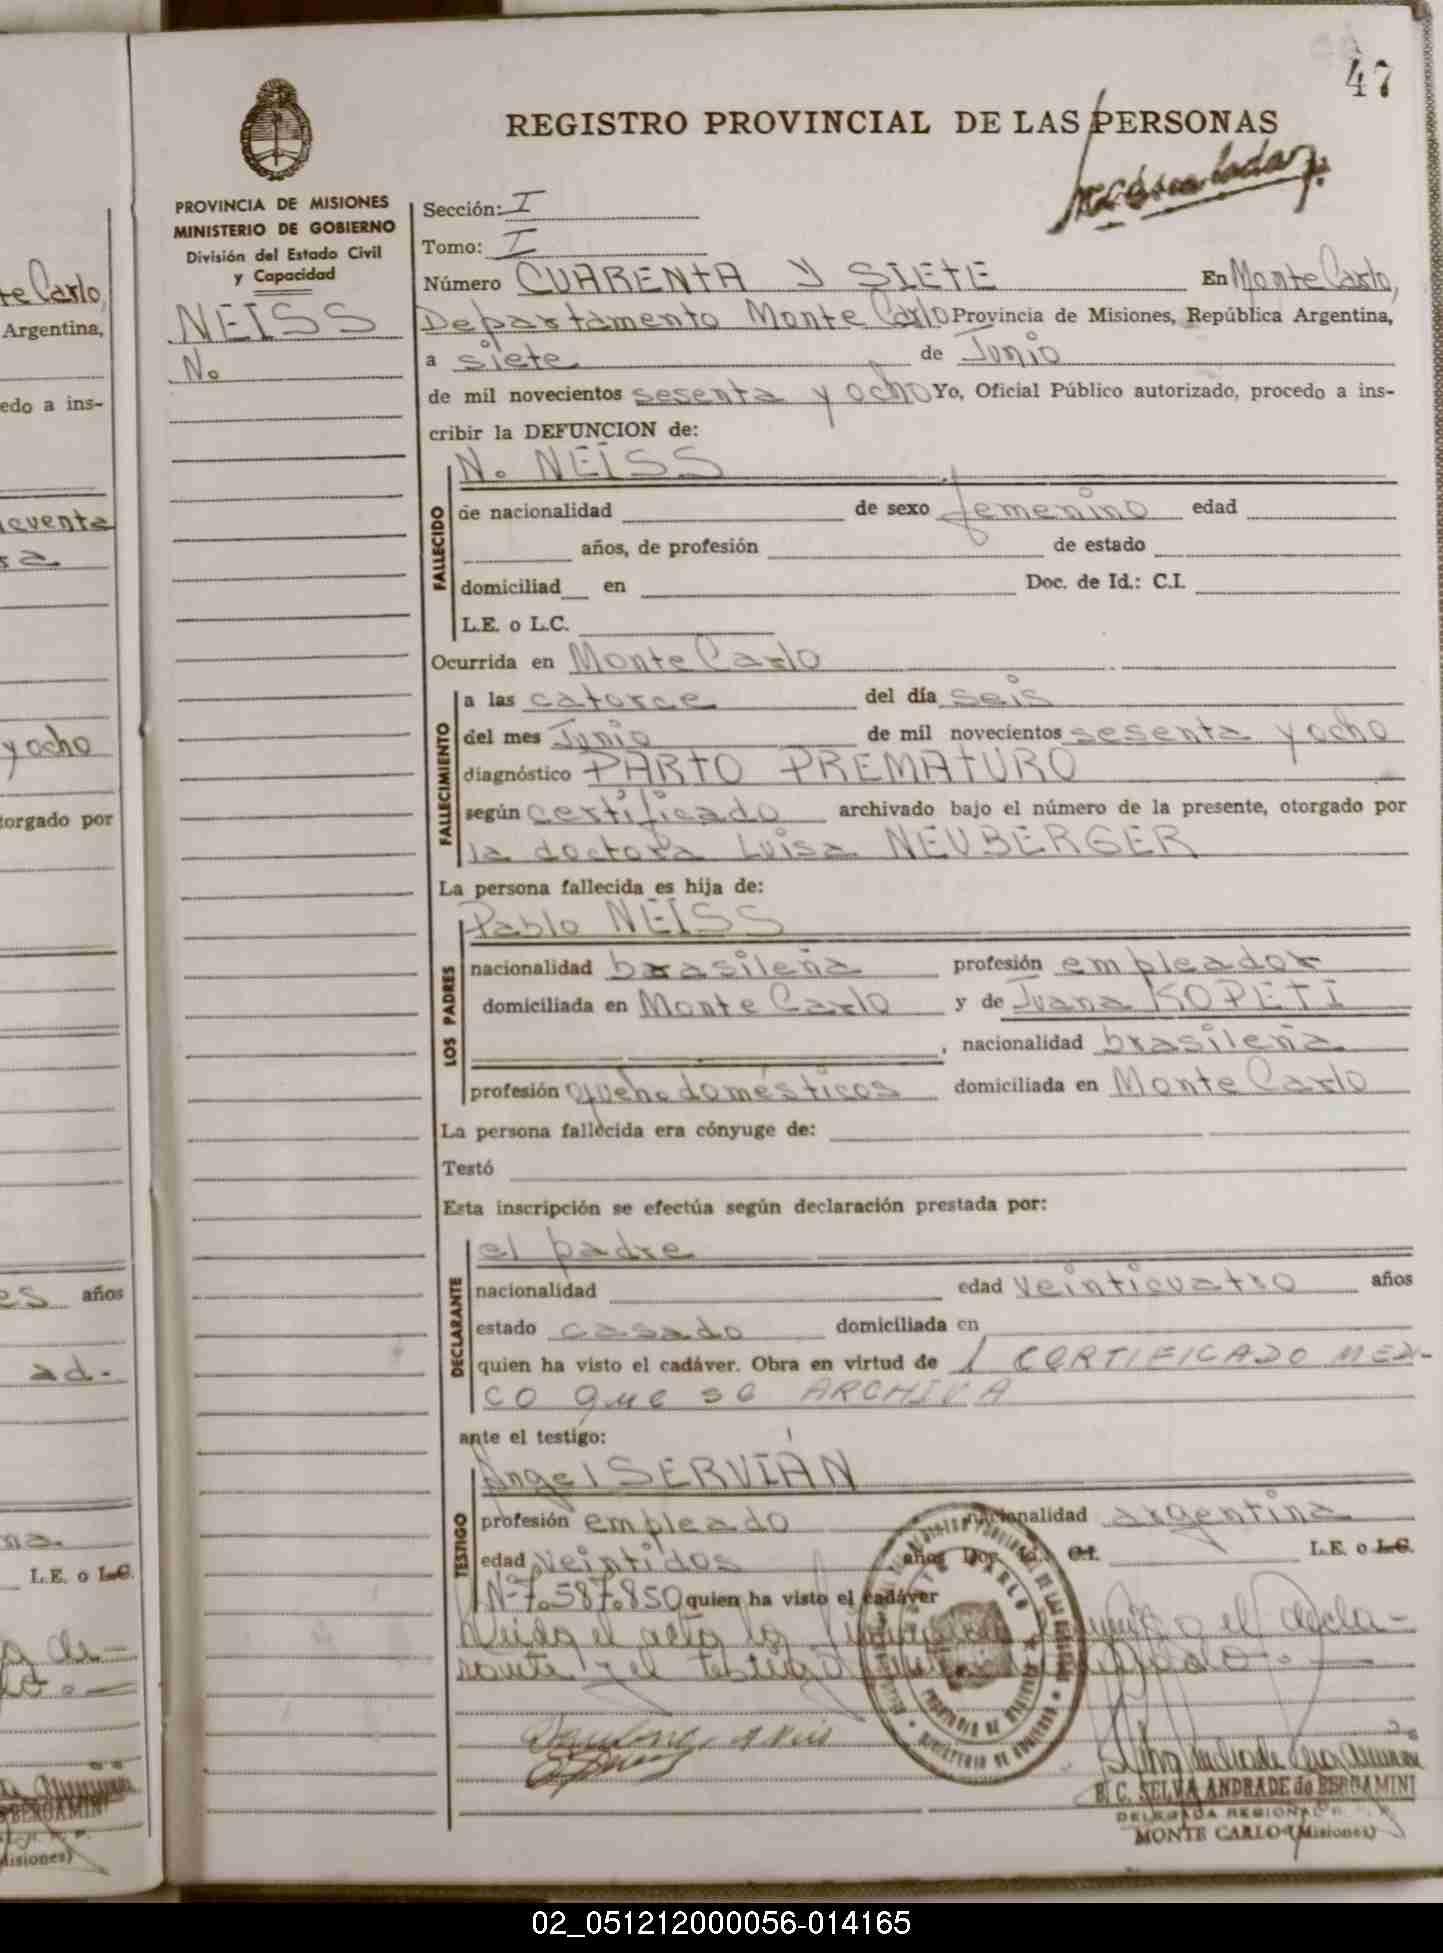 47
REGISTRO PROVINCIAL DE LAS PERSONAS
PROVINCIA DE MISIONES
MINISTERIO DE GOBIERNO
División del Estado Civil
y Capacidad
NEISS
N.
Sección: I
Tomo: I
Número CUARENTA Y SIETE En Monte Carlo,
Departamento Monte Carlo Provincia de Misiones, República Argentina,
a siete de Junio
de mil novecientos sesenta y ocho Yo, Oficial Público autorizado, procedo a ins-
cribir la DEFUNCION de:
FALLECIDO
N. NEISS
de nacionalidad de sexo femenino edad
años, de profesión de estado
domiciliad en Doc. de Id.: C.I.
L.E. o L.C.
Ocurrida en Monte Carlo
FALLECIMIENTO
a las catorce del día seis
del mes Junio de mil novecientos sesenta y ocho
diagnóstico PARTO PREMATURO
según certificado archivado bajo el número de la presente, otorgado por
la doctora Luisa NEUBERGER
La persona fallecida es hija de:
LOS PADRES
Pablo NEISS
nacionalidad brasileña profesión empleador
domiciliada en Monte Carlo y de Juana KOPETI
, nacionalidad brasileña
profesión queh. domésticos domiciliada en Monte Carlo
La persona fallecida era cónyuge de:
Testó
Esta inscripción se efectúa según declaración prestada por:
DECLARANTE
el padre
nacionalidad edad veinticuatro años
estado casado domiciliada en
quien ha visto el cadáver. Obra en virtud de 1 CERTIFICADO MEDI-
CO que se ARCHIVA
ante el testigo:
TESTIGO
Angel SERVIÁN
profesión empleado nacionalidad argentina
edad veintidos años Doc. Id. C.I. L.E. o L.C.
Nº 7.587.850 quien ha visto el cadáver
Leida el acta la el decla-
rante y el testigo
B. C. SELVA ANDRADE de BERGAMINI
DELEGADA REGIONAL
MONTE CARLO (Misiones)
te Carlo,
Argentina,
edo a ins-
cuenta
y ocho
torgado por
es años
ad.
na
L.E. o L.C.
BERGAMINI
Misiones)
02_051212000056-014165